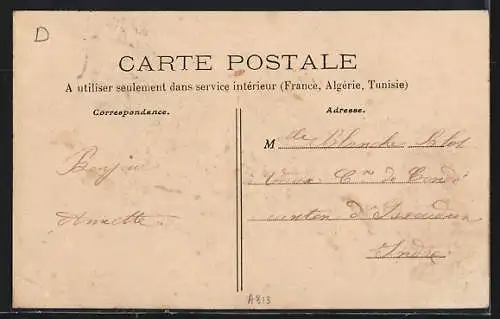 D
CARTE POSTALE
A utiliser seulement dans service intérieur (France, Algérie, Tunisie)
Correspondance.
Bonjour
Annette
Adresse.
Mlle Blanche Blot
Cne de Condé
canton d'Issoudun
Indre
A813